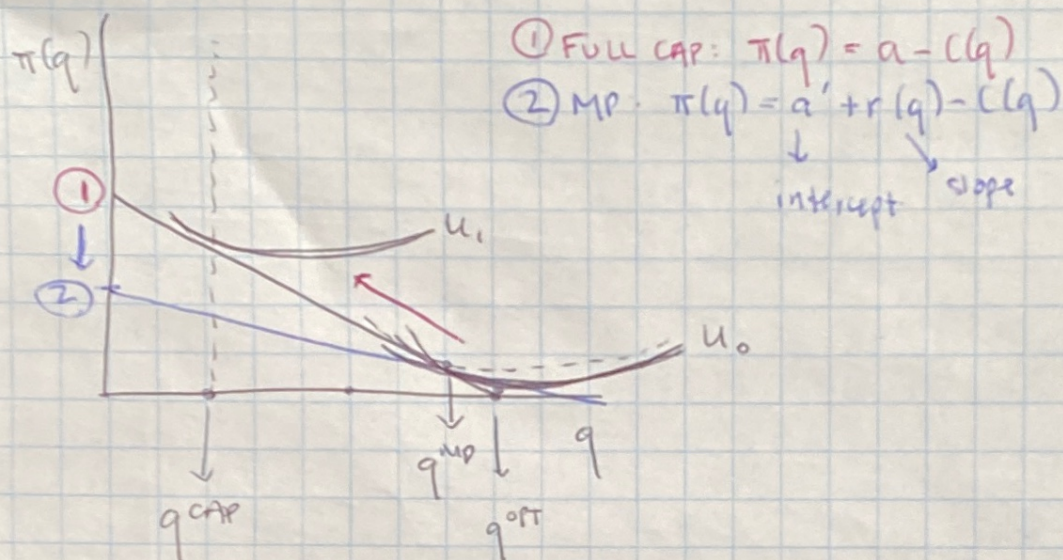 π(q)
① FULL CAP: π(q) = a - c(q)
② MP. π(q) = a' + r(q) - c(q)
intercept
slope
①
②
u₁
u₀
q^MP
q
q^CAP
q^OPT